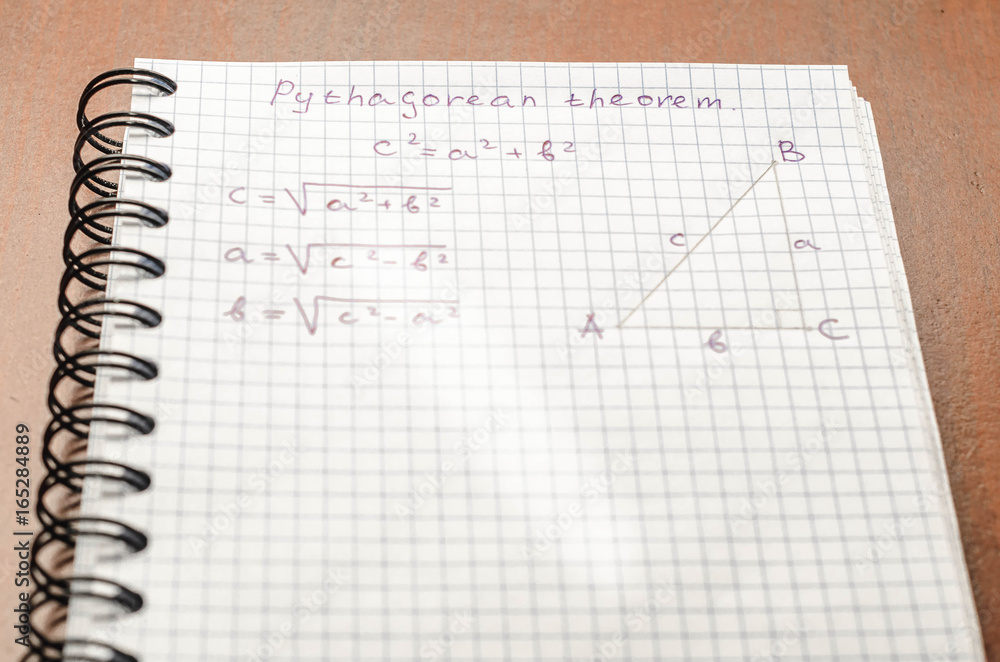 Pythagorean theorem.
c² = a² + b²
c = √(a² + b²)
a = √(c² - b²)
b = √(c² - a²)
B
c
a
A
b
C
Adobe Stock | #165284889
Adobe Stock